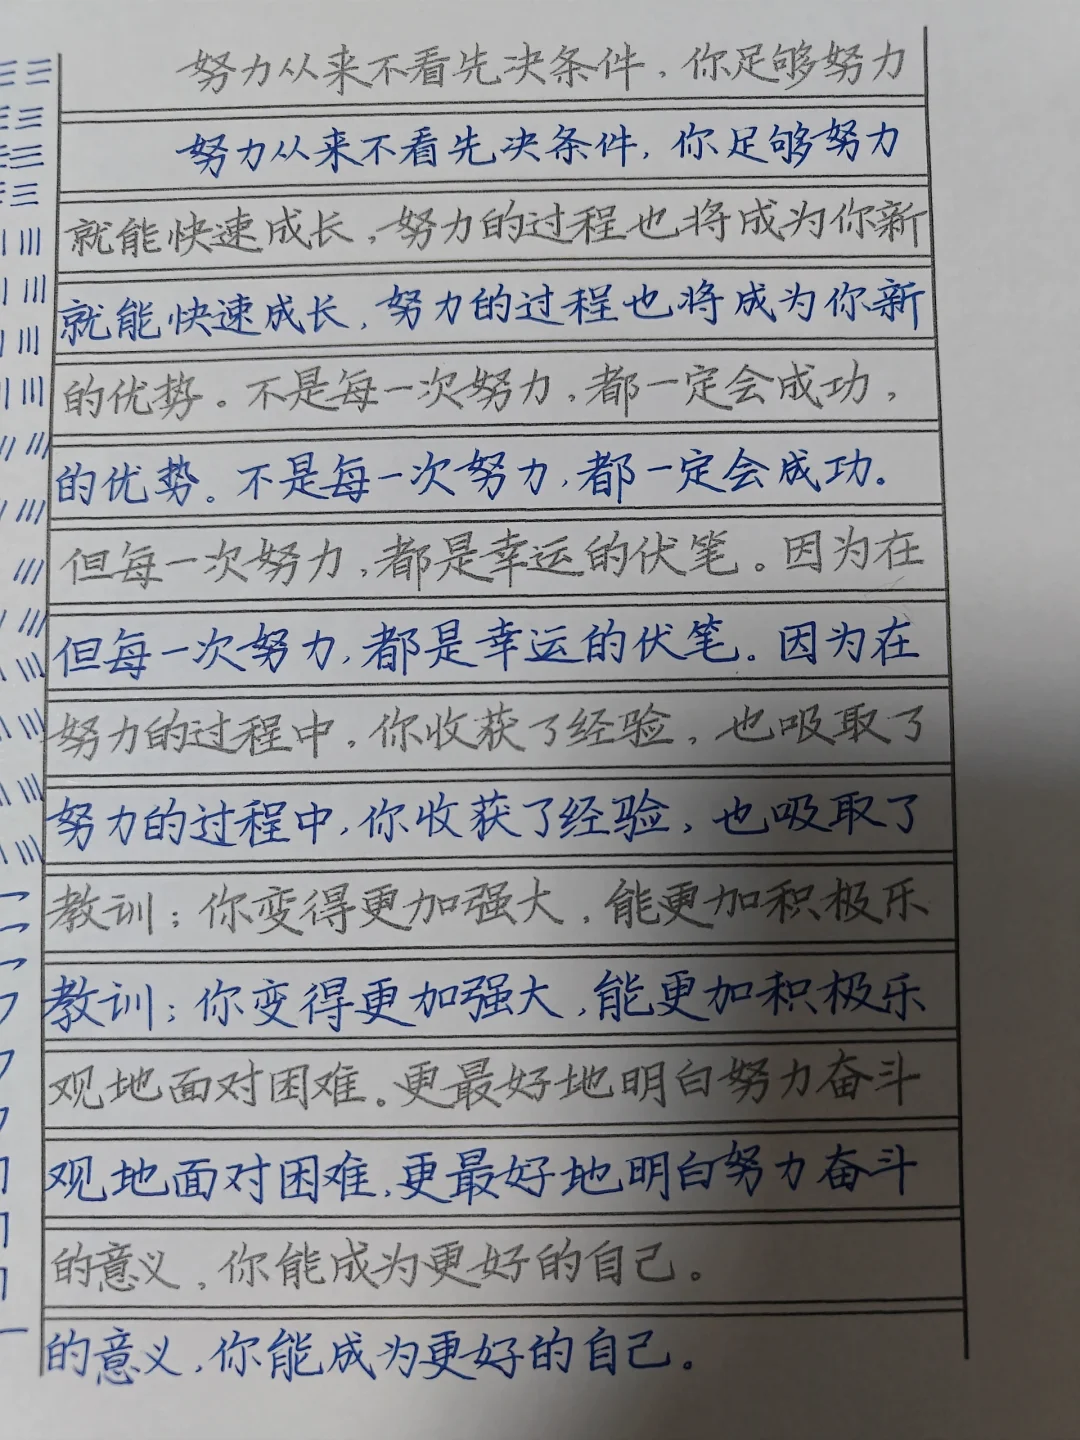 努力从来不看先决条件，你足够努力
努力从来不看先决条件，你足够努力
就能快速成长，努力的过程也将成为你新
就能快速成长，努力的过程也将成为你新
的优势。不是每一次努力，都一定会成功，
的优势。不是每一次努力，都一定会成功。
但每一次努力，都是幸运的伏笔。因为在
但每一次努力，都是幸运的伏笔。因为在
努力的过程中，你收获了经验，也吸取了
努力的过程中，你收获了经验，也吸取了
教训；你变得更加强大，能更加积极乐
教训；你变得更加强大，能更加积极乐
观地面对困难。更最好地明白努力奋斗
观地面对困难，更最好地明白努力奋斗
的意义，你能成为更好的自己。
的意义，你能成为更好的自己。